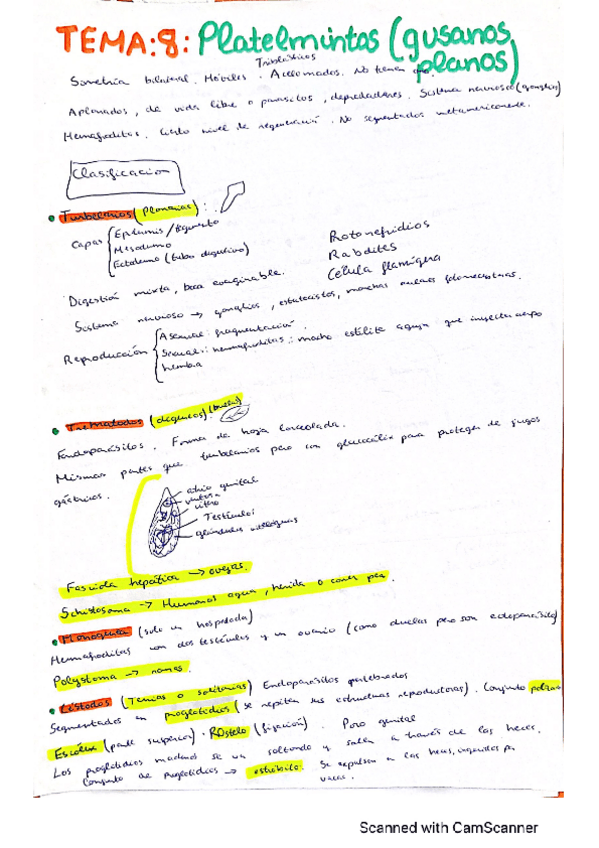 TEMA:8: Platelmintos (gusanos planos)
Simetría bilateral. Móviles. Triblásticos. Acelomados. No tienen
Aplanados, de vida libre o parásitos, depredadores. Sistema nervioso (ganglios)
Hemafroditas. Cierto nivel de regeneración. No segmentados metamericamente.
Clasificacion
Turbelarios (Planarias):
Capas Epidermis/
Mesodermo
Ectodermo (tubo digestivo)
Protonefridios
Rabdites
Célula flamígera
Digestión mixta, boca
Sistema nervioso → ganglios, estatocistos, manchas
Reproducción Asexual: fragmentación.
Sexual: hemafroditas: macho estilete aguja que inyecta
hembra
Trematodos (digeneos)
Endoparásitos. Forma de hoja lanceolada.
Mismas partes que turbelarios pero con glucocálix para proteger de jugos
gástricos.
atrio genital
ventosa
Testículos
glándulas
Fasciola hepática → ovejas.
Schistosoma → Humanos agua, herida o
Monogenea (solo un hospedador)
Hemafroditas con dos testículos y un ovario (como duelas pero son ectoparásitos)
Polystoma → ranas.
Cestodos (Tenias o solitarias) Endoparásitos vertebrados
Segmentados en proglotidios (se repiten sus estructuras reproductoras). Conjunto
Escólex (parte superior). Rostelo (fijación). Poro genital
Los proglotidios maduros se van soltando y salen a través de las heces.
Conjunto de proglotidios → estróbilo. Se expulsan a las heces, ingeridos por
vacas.
Scanned with CamScanner